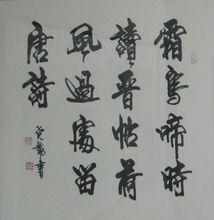 霜鸟啼時
讀晋帖前
風過處留
唐詩